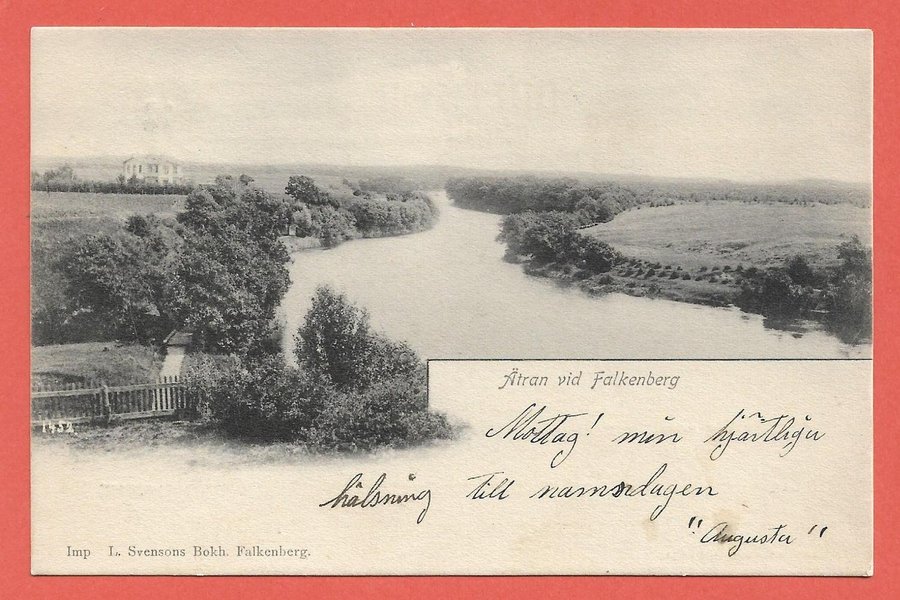 Ätran vid Falkenberg
Mottag! min hjärtliga
hälsning till namnsdagen
"Augusta"
1932
Imp L. Svensons Bokh. Falkenberg.